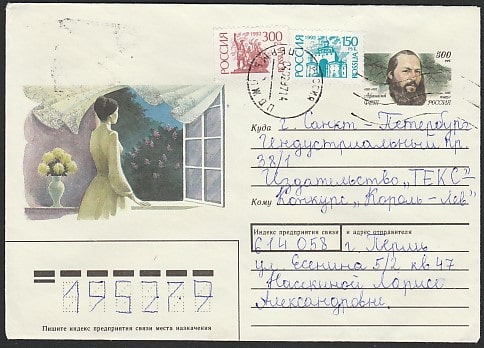 РОССИЯ 300 1992
РОССИЯ 1992 150 ROSSIJA
500
Афанасий
Фет
РОССИЯ
Куда г. Санкт-Петербург
Индустриальный пр.
38/1
Издательство „ТЕКС“
Кому Конкурс „Король-Лев“
Индекс предприятия связи и адрес отправителя
614058 г Пермь
ул Есенина 5/2 кв 47
Ларисе
Александровне
195279
Пишите индекс предприятия связи места назначения